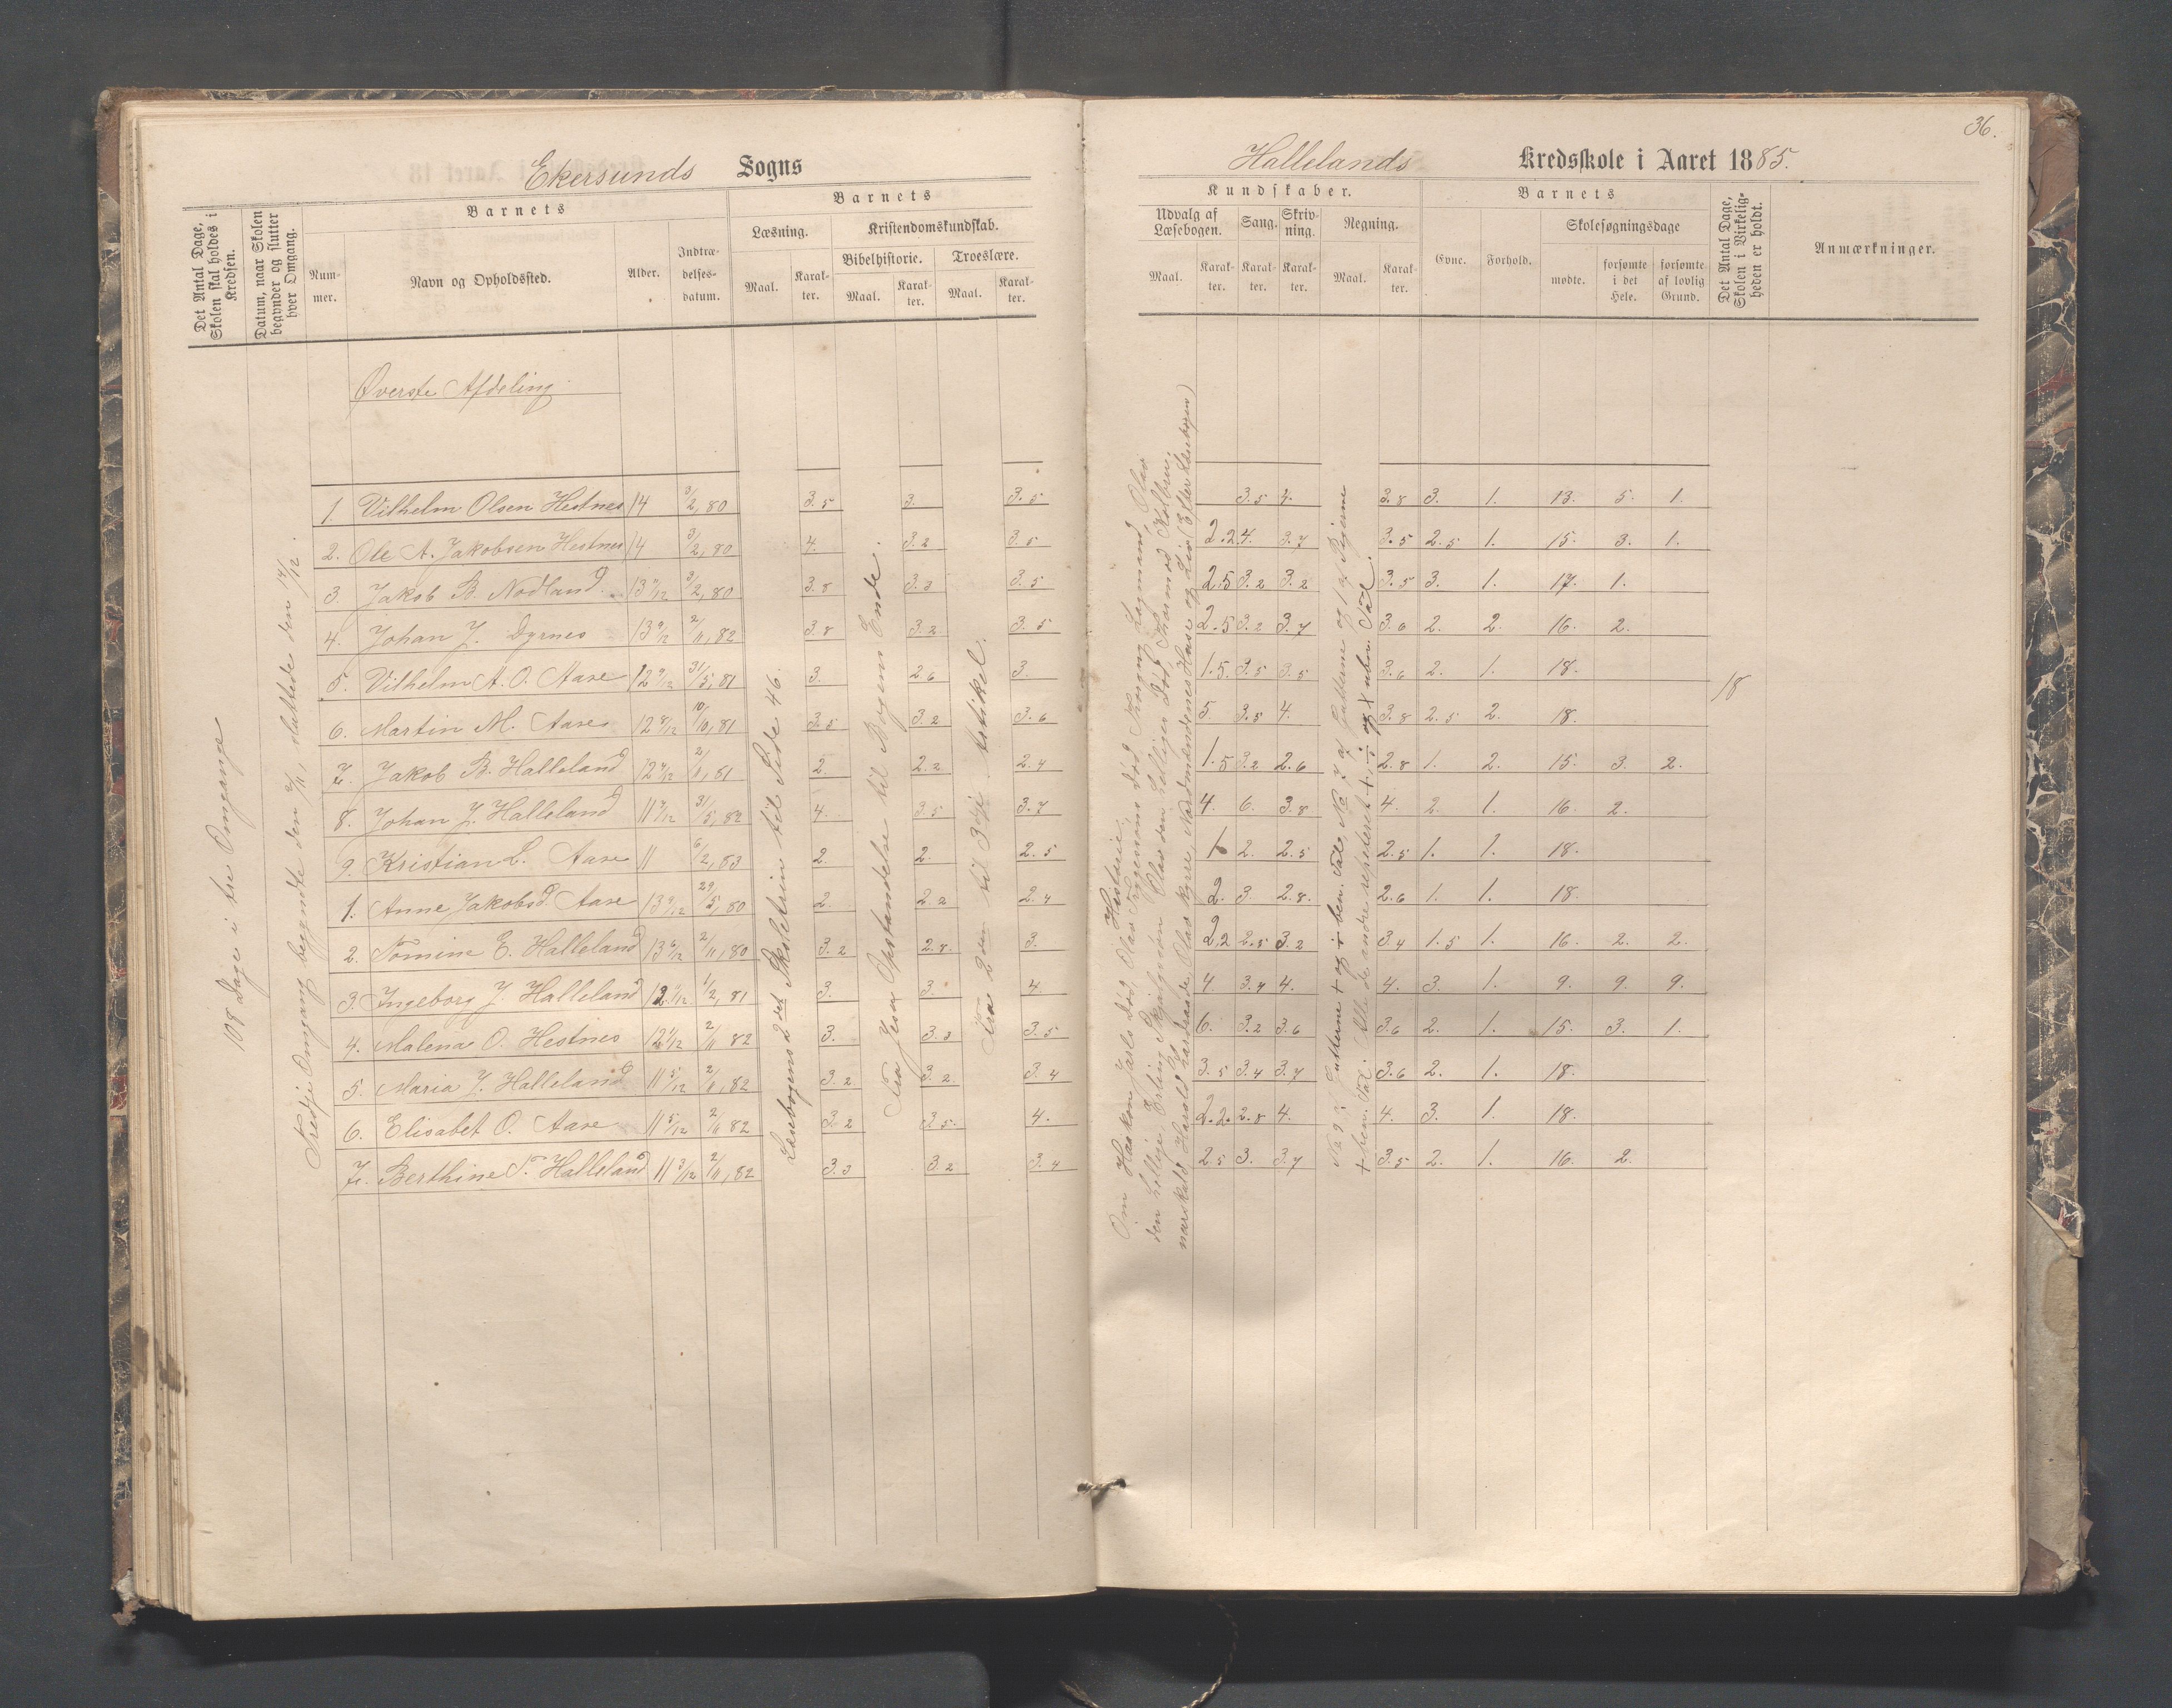 36.
Ekersunds Sogns
Hallelands Kredsskole i Aaret 1885.
Det Antal Dage, Skolen skal holdes i Kredsen.
Datum, naar Skolen begynder og slutter hver Omgang.
Barnets
Nummer.
Navn og Opholdssted.
Alder.
Indtrædelsesdatum.
Barnets
Læsning.
Maal.
Karakter.
Kristendomskundskab.
Bibelhistorie.
Maal.
Karakter.
Troeslære.
Maal.
Karakter.
Kundskaber.
Udvalg af Læsebogen.
Maal.
Karakter.
Sang.
Karakter.
Skrivning.
Karakter.
Regning.
Maal.
Karakter.
Barnets
Evne.
Forhold.
Skolesøgningsdage
mødte.
forsømte i det Hele.
forsømte af lovlig Grund.
Det Antal Dage, Skolen i Virkeligheden er holdt.
Anmærkninger.
Øverste Afdeling
108 Dage i tre Omgange
Tredje Omgang begyndte den 2/11, sluttede den 14/12.
Læsebogens 2det Skoletrin til Side 46.
Fra Jesu Opstandelse til Bogens Ende.
Fra 2den til 3dje Artikel.
Historie.
Om Haakon Jarls Død, Olav Trygvesøns Død
den hellige, Erling Skjalgsøn, Olav den helliges Død
+ ben. Tal. Alle de andre repeteret
1. Vilhelm Olsen Hestnes 14 3/2, 80 3.5 3. 3.5 3.5 4. 3.8 3. 1. 13. 5. 1.
2. Ole A. Jakobsen Hestnes 14 3/2, 80 4. 3.2 3.5 2.2 4. 3.7 3.5 2.5 1. 15. 3. 1.
3. Jakob B. Nodland 3/2, 80 3.8 3.3 3.5 2.5 3.2 3.2 3.5 3. 1. 17. 1.
4. Johan J. Dyrnes 13 9/12 2/11, 82 3.8 3.2 3.5 2.5 3.2 3.7 3.6 2. 2. 16. 2.
5. Vilhelm A. O. Aase 12 9/12 31/5, 81 3. 2.6 3. 1.5. 3.5 3.5 3.6 2. 1. 18. 18
6. Martin M. Aase 12 8/12 10/10, 81 3.5 3.2 3.6 5. 3.5 4. 3.8 2.5 2. 18.
7. Jakob B. Halleland 2. 2.2 2.4 1.5 3.2 2.6 2.8 1. 2. 15. 3. 2.
8. Johan J. Halleland 31/5, 82 4. 3.5 3.7 4. 6. 3.8 4. 2. 1. 16. 2.
9. Kristian E. Aase 11 6/2, 83 2. 2. 2.5 1. 2. 2.5 2.5 1. 1. 18.
1. Anne Jakobsd. Aase 13 9/12 29/5, 80 2. 2.2 2.4 2. 3. 2.8. 2.6 1. 1. 18.
2. Tomine E. Halleland 2/11, 80 3.2 2.8. 3. 2.2 2.5 3.2 3.4 1.5 1. 16. 2. 2.
3. Ingeborg J. Halleland 1/2, 81 3. 3. 4. 4. 3.4 4. 4. 3. 1. 9. 9. 9.
4. Malena O. Hestnes 2/11 82 3. 3.3 3.5 6. 3.2 3.6 3.6 2. 1. 15. 3. 1.
5. Maria J. Halleland 11 5/12 2/11, 82 3.2 3.2 3.4 3.5 3.4 3.7 3.6 2. 1. 18.
6. Elisabet O. Aase 11 5/12 2/11 82 3.2 3.5. 4. 2.2. 2.8 4. 4. 3. 1. 18.
7. Berthine T. Halleland 11 3/12 2/11, 82 3.3 3.2 3.4 2.5 3. 3.7 3.5 2. 1. 16. 2.